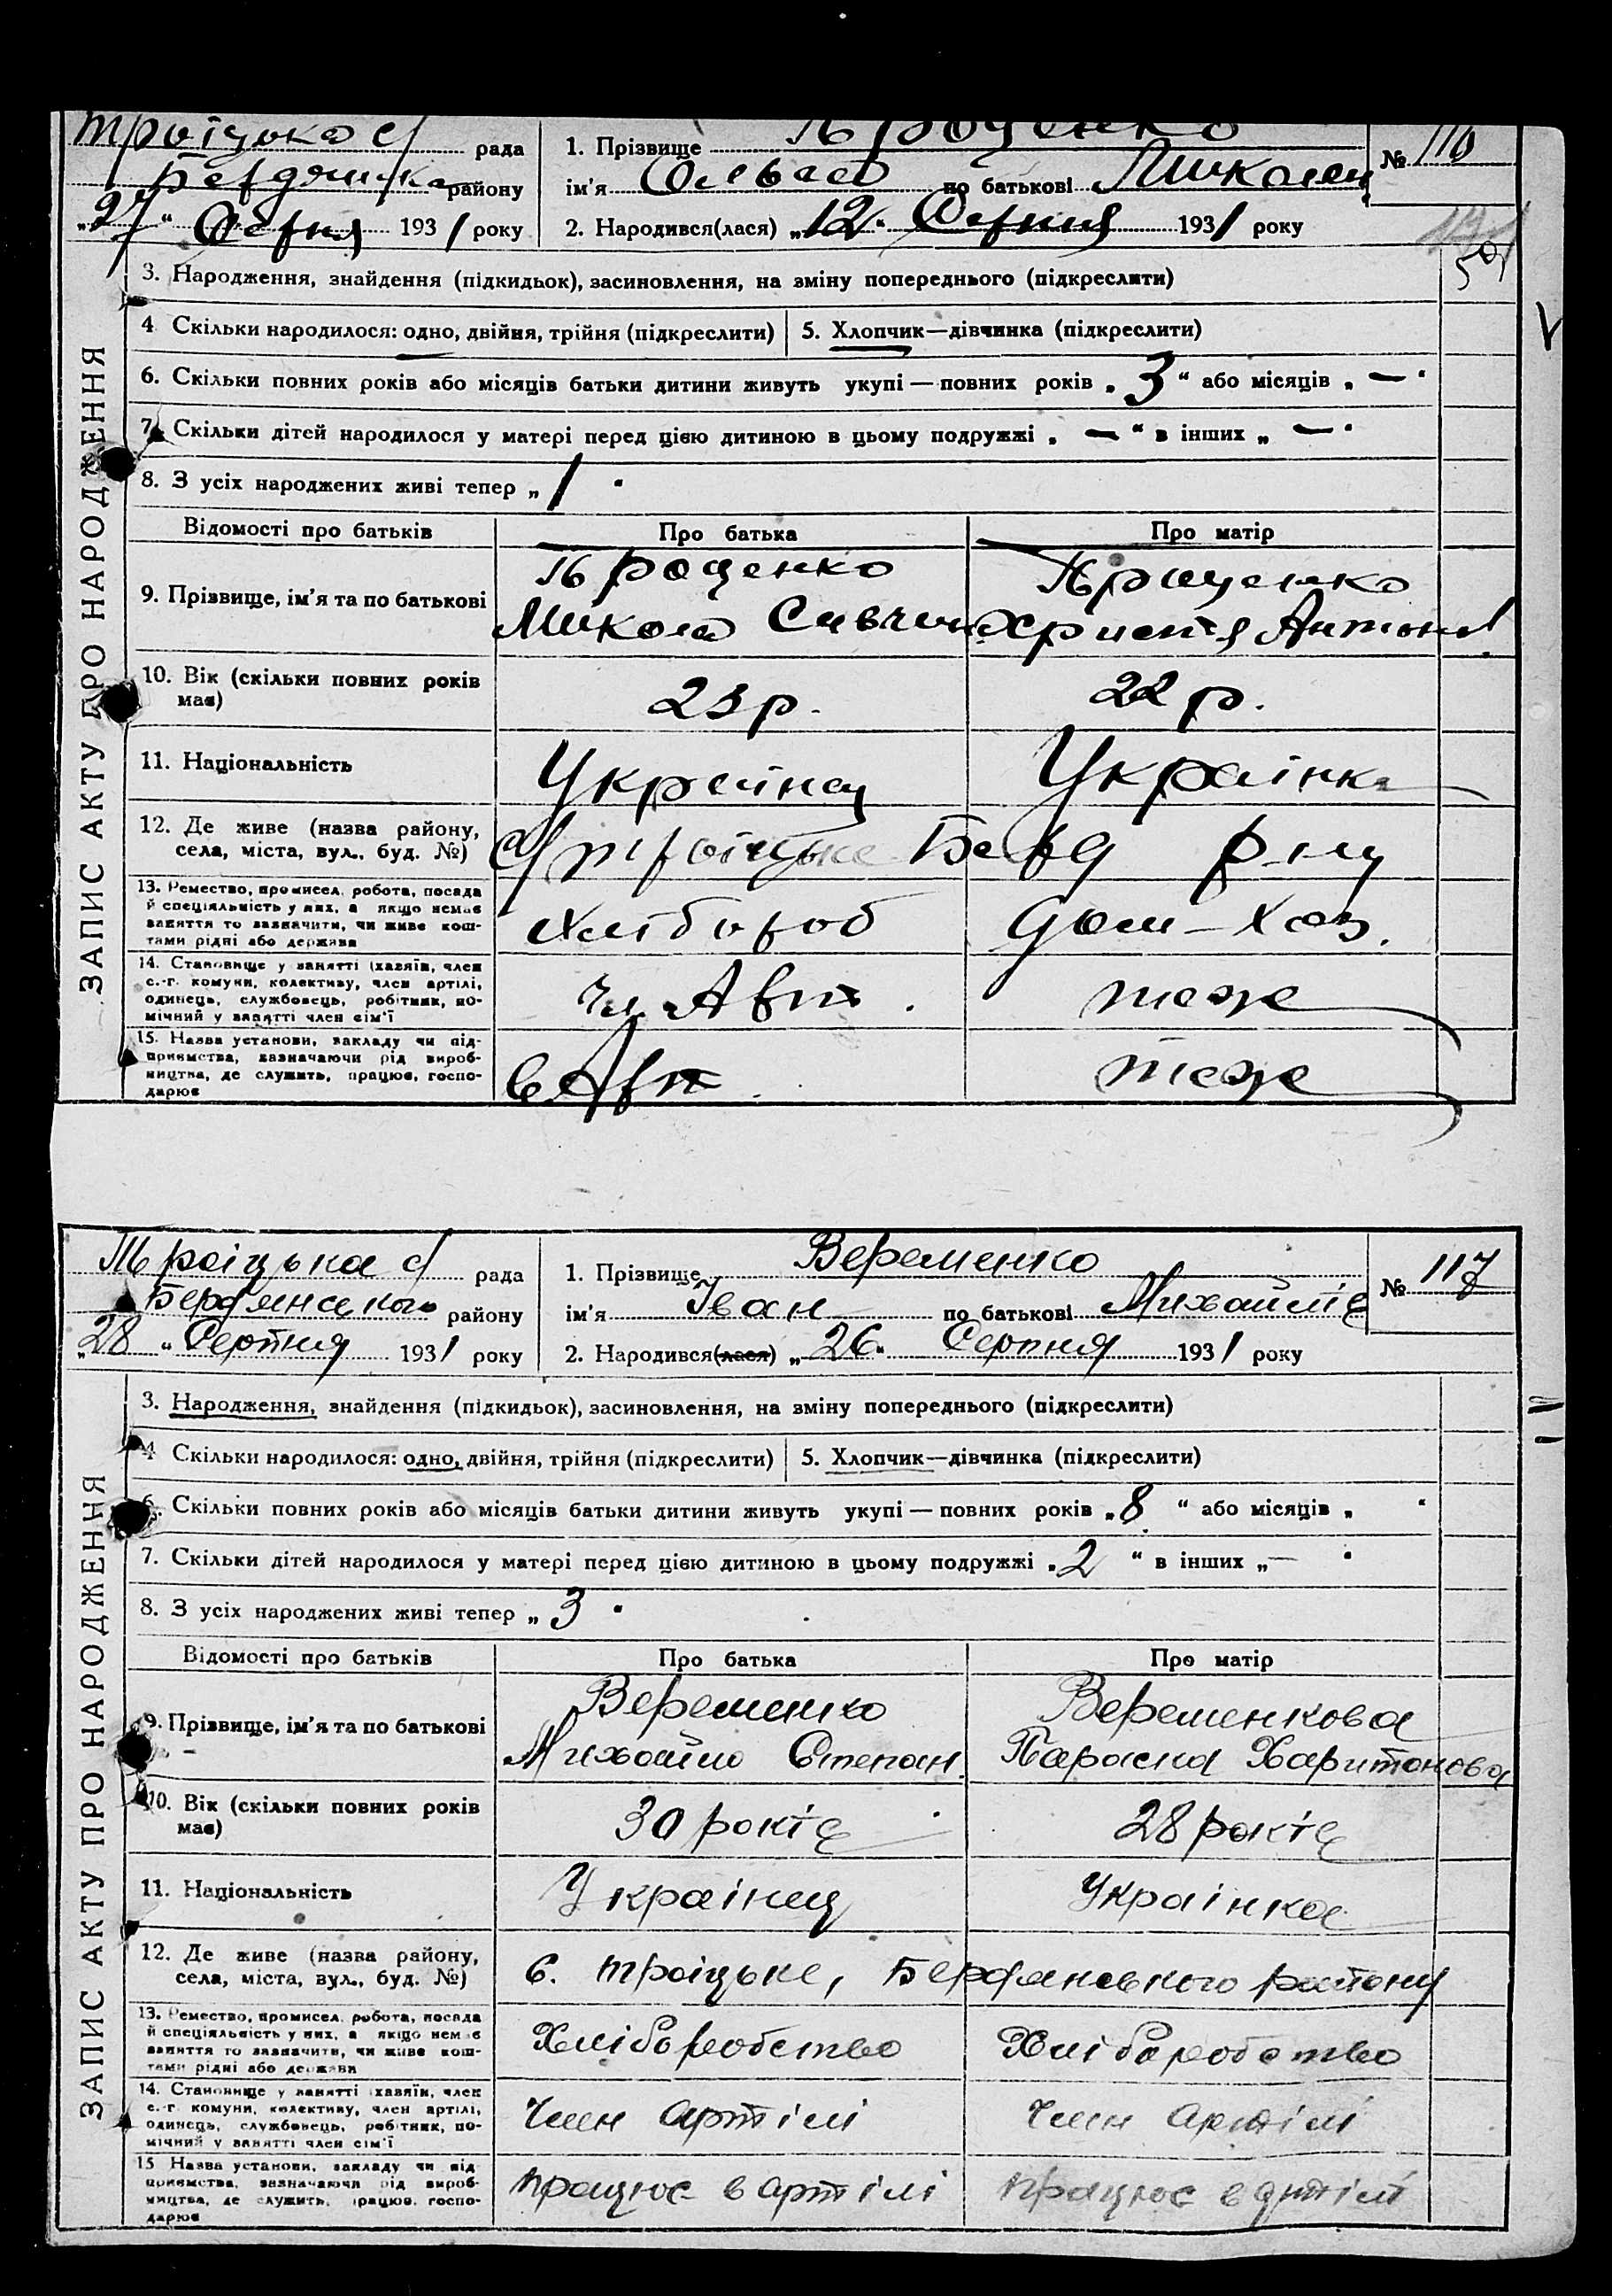 Троіцька с/ рада
Бердянська району
„27“ Серпня 1931 року
1. Прізвище Проценко
ім'я по батькові Миколаи
2. Народився(лася) „12“ Серпня 1931 року
№ 116
3. Народження, знайдення (підкидьок), засиновлення, на зміну попереднього (підкреслити)
4 Скільки народилося: одно, двійня, трійня (підкреслити) 5. Хлопчик—дівчинка (підкреслити)
6. Скільки повних років або місяців батьки дитини живуть укупі — повних років „3“ або місяців „—“
7. Скільки дітей народилося у матері перед цією дитиною в цьому подружжі „—“ в інших „—“
8. З усіх народжених живі тепер „1“
ЗАПИС АКТУ ПРО НАРОДЖЕННЯ
Відомості про батьків Про батька Про матір
9. Прізвище, ім'я та по батькові
Проценко
Микола Савчич
Проценко
Христя Антон
10. Вік (скільки повних років
має)
23 р. 22 р.
11. Національність Украйнец Украінка
12. Де живе (назва району,
села, міста, вул., буд. №)
с/ Троіцьке Берд р-ну
13. Ремество, промисел, робота, посада
й спеціяльність у них, а якщо немає
заняття то зазначити, чи живе кош-
тами рідні або держави
Хлібороб Дом-Хоз.
14. Становище у занятті (хазяїн, член
с.-г. комуни, колективу, член артілі,
одинець, службовець, робітник, по-
мічний у занятті член сім'ї
чл. Арт. тоже
15. Назва установи, закладу чи під-
приємства, зазначаючи рід вироб-
ництва, де служить, працює, госпо-
дарює
в Арт. тоже
Троіцька с/ рада
Бердянського району
„28“ Серпня 1931 року
1. Прізвище Веременко
ім'я Іван по батькові Михайлів
2. Народився(лася) „26“ Серпня 1931 року
№ 117
3. Народження, знайдення (підкидьок), засиновлення, на зміну попереднього (підкреслити)
4 Скільки народилося: одно, двійня, трійня (підкреслити) 5. Хлопчик—дівчинка (підкреслити)
6. Скільки повних років або місяців батьки дитини живуть укупі — повних років „8“ або місяців „ “
7. Скільки дітей народилося у матері перед цією дитиною в цьому подружжі „2“ в інших „—“
8. З усіх народжених живі тепер „3“
ЗАПИС АКТУ ПРО НАРОДЖЕННЯ
Відомості про батьків Про батька Про матір
9. Прізвище, ім'я та по батькові
Веременко
Михайло Степан.
Веременкова
Параска Харитонова
10. Вік (скільки повних років
має)
30 років 28 років
11. Національність Украінец Украінка
12. Де живе (назва району,
села, міста, вул., буд. №)
с. Троіцьке, Бердянського району
13. Ремество, промисел, робота, посада
й спеціяльність у них, а якщо немає
заняття то зазначити, чи живе кош-
тами рідні або держави
Хліборобство Хліборобство
14. Становище у занятті (хазяїн, член
с.-г. комуни, колективу, член артілі,
одинець, службовець, робітник, по-
мічний у занятті член сім'ї
Член артілі Член артілі
15 Назва установи, закладу чи під-
приємства, зазначаючи рід вироб-
ництва, де служить, працює, госпо-
дарює
працює в артілі працює в артілі